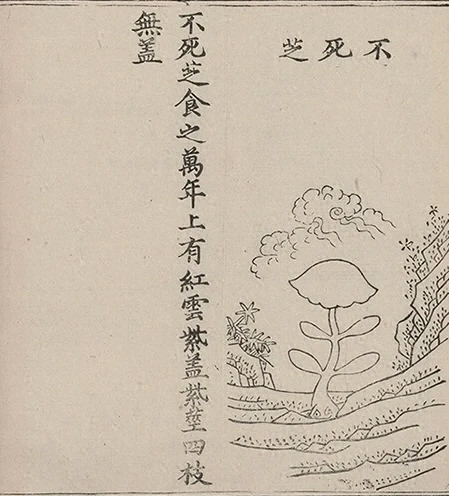 不死芝
不死芝食之萬年上有紅雲紫盖紫莖四枝
無盖